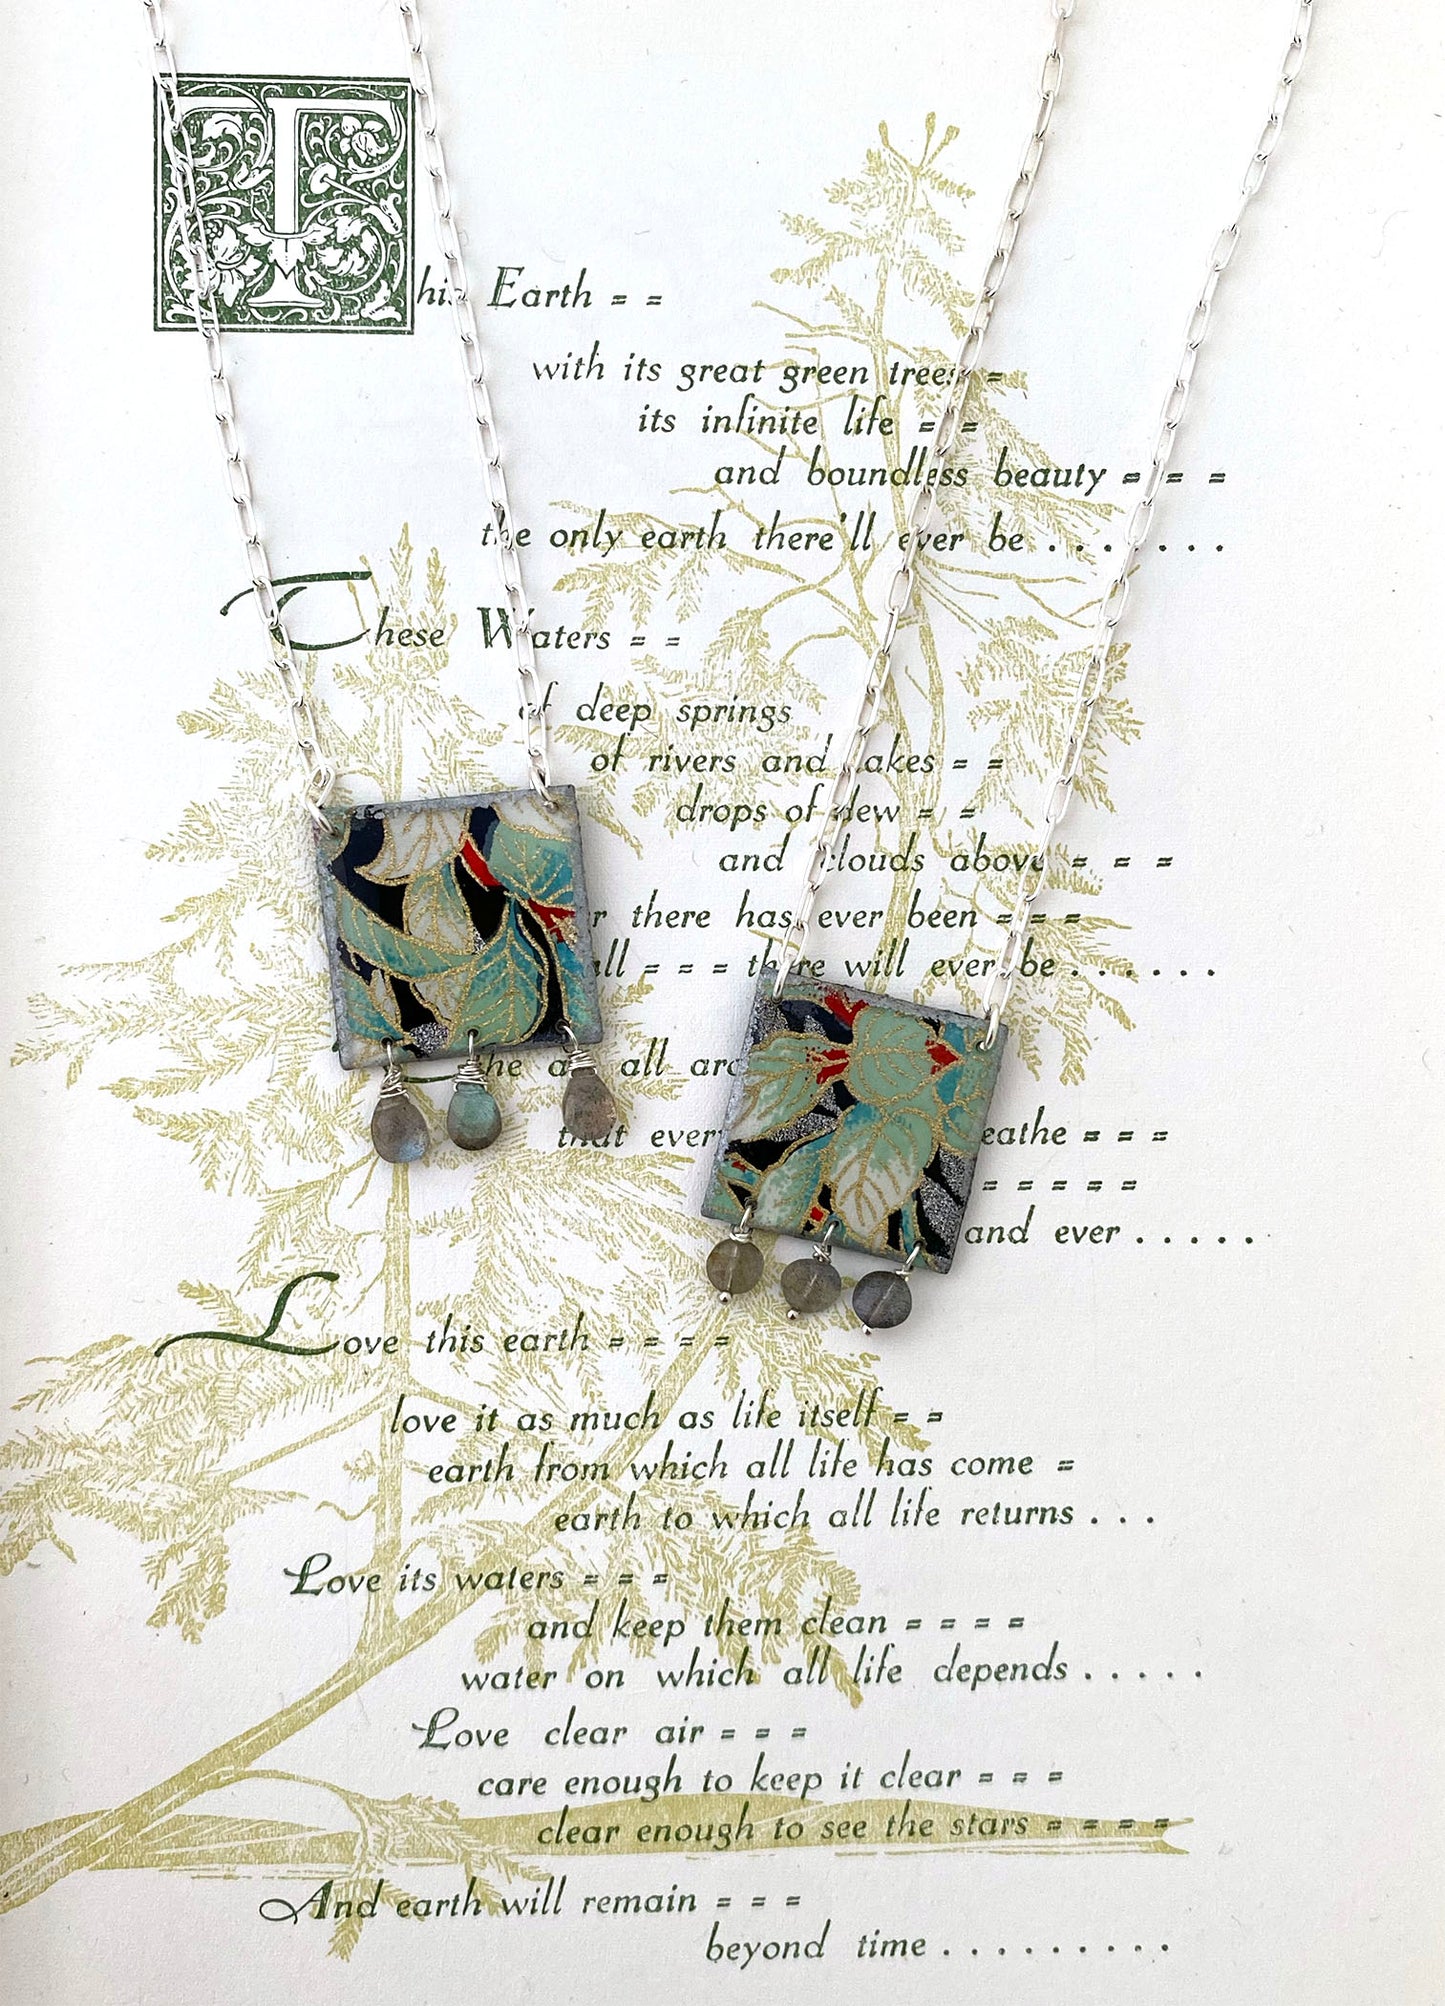 This Earth = =
with its great green trees =
its infinite life = =
and boundless beauty = = =
the only earth there'll ever be . . . . . . .
These Waters = =
of deep springs
of rivers and lakes = =
drops of dew = =
and clouds above = = =
there has ever been = = =
all = = = there will ever be . . . . . .
all
that every
= = =
= = = = =
and ever . . . . .
Love this earth = = = =
love it as much as life itself = =
earth from which all life has come =
earth to which all life returns . . .
Love its waters = = =
and keep them clean = = = =
water on which all life depends . . . . .
Love clear air = = =
care enough to keep it clear = = =
clear enough to see the stars = = = =
And earth will remain = = =
beyond time . . . . . . . . .